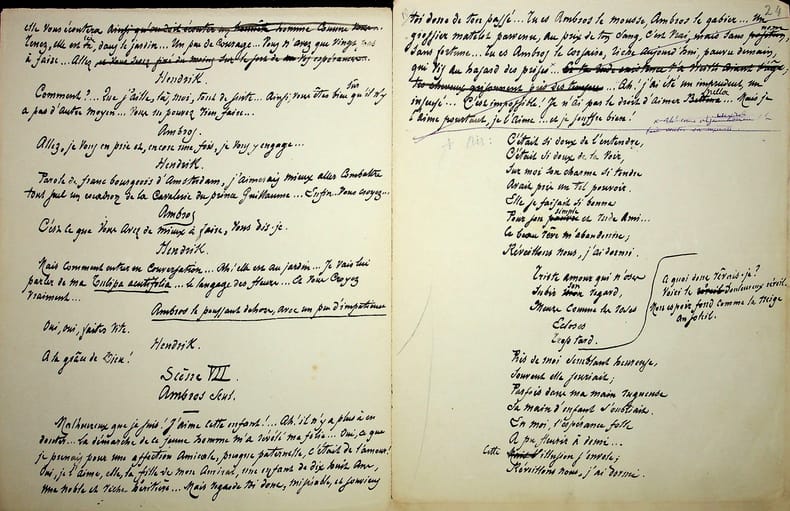 elle vous écoutera ainsi qu'on doit écouter un honnête homme comme vous.
Tenez, elle est là, dans le jardin... Un peu de courage. Vous n'avez que vingt pas
à faire... Allez
Hendrik.
Comment?... Que j'aille, là, moi, tout de suite... Ainsi, vous êtes bien sûr qu'il n'y
a pas d'autre moyen... Vous ne pouvez rien faire...
Ambros.
Allez, je vous en prie et, encore une fois, je vous y engage...
Hendrik.
Parole de franc bourgeois d'Amsterdam, j'aimerais mieux aller combattre
tout seul un escadron de la Cavalerie du prince Guillaume... Enfin. Vous croyez...
Ambros
C'est ce que vous avez de mieux à faire, vous dis-je.
Hendrik.
Mais comment entrer en conversation... Ah! elle est au jardin... Je vais lui
parler de ma Tulipa acutifolia... le langage des fleurs... Ce vous croyez
vraiment...
Ambros le poussant dehors, avec un peu d'impatience
Oui, oui, faites vite.
Hendrik.
A la grâce de Dieu!
Scène VII
Ambros seul.
Malheureux que je suis! J'aime cette enfant!... Ah! il n'y a plus à en
douter... la démarche de ce jeune homme m'a révélé ma folie... Oui, ce que
je prenais pour une affection amicale, presque paternelle, c'était de l'amour!
Oui, je l'aime, elle, la fille de mon Amiral, une enfant de dix huit ans,
une noble et riche héritière... Mais regarde toi donc, misérable, et souviens
24
toi donc de ton passé... Tu es Ambros le mousse, Ambros le gabier... Un
grossier matelot parvenu, au prix de ton sang, c'est vrai, mais sans nom,
sans fortune... Tu es Ambros le corsaire, riche aujourd'hui, pauvre demain,
qui vis au hasard des prises...
Ah! j'ai été un imprudent, un
insensé... C'est impossible! Je n'ai pas le droit d'aimer Nelly... Mais je
l'aime pourtant, je l'aime... et je souffre bien!
Air:
C'était si doux de l'entendre,
C'était si doux de la voir,
Sur moi son charme si tendre
Avait pris un tel pouvoir.
Elle se faisait si bonne
Pour son simple et rude ami...
Ce beau rêve m'abandonne;
Réveillons nous, j'ai dormi.
Triste amour qui n'oser
Subir son regard,
Meure comme les roses
Ecloses
Trop tard.
A quoi donc rêvais-je?
Voici le douloureux réveil.
Mon espoir fond comme la neige
Au soleil.
Près de moi semblant heureuse,
Souvent elle souriait;
Parfois dans ma main rugueuse
Sa main d'enfant s'oubliait.
En moi, l'espérance folle
A pu fleurir à demi...
Cette illusion s'envole;
Réveillons nous, j'ai dormi.